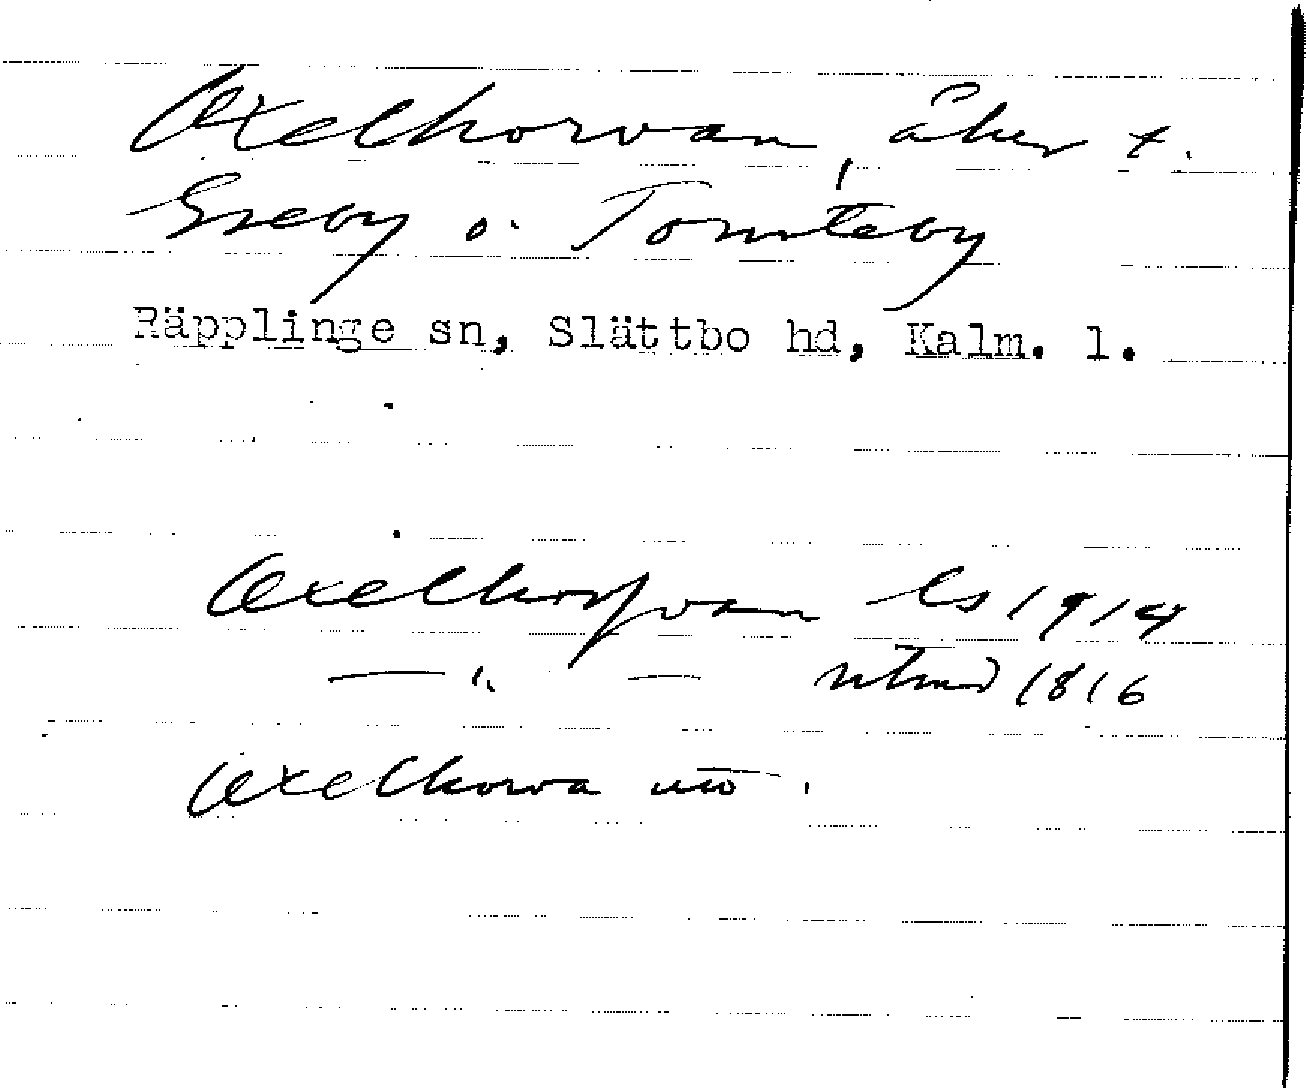 Oxelhorvan, åker t.
Greby o. Tomteby
Räpplinge sn, Slättbo hd, Kalm. l.
Oxelhorfvan Ls 1914
— " — 1816
Oxelhorva